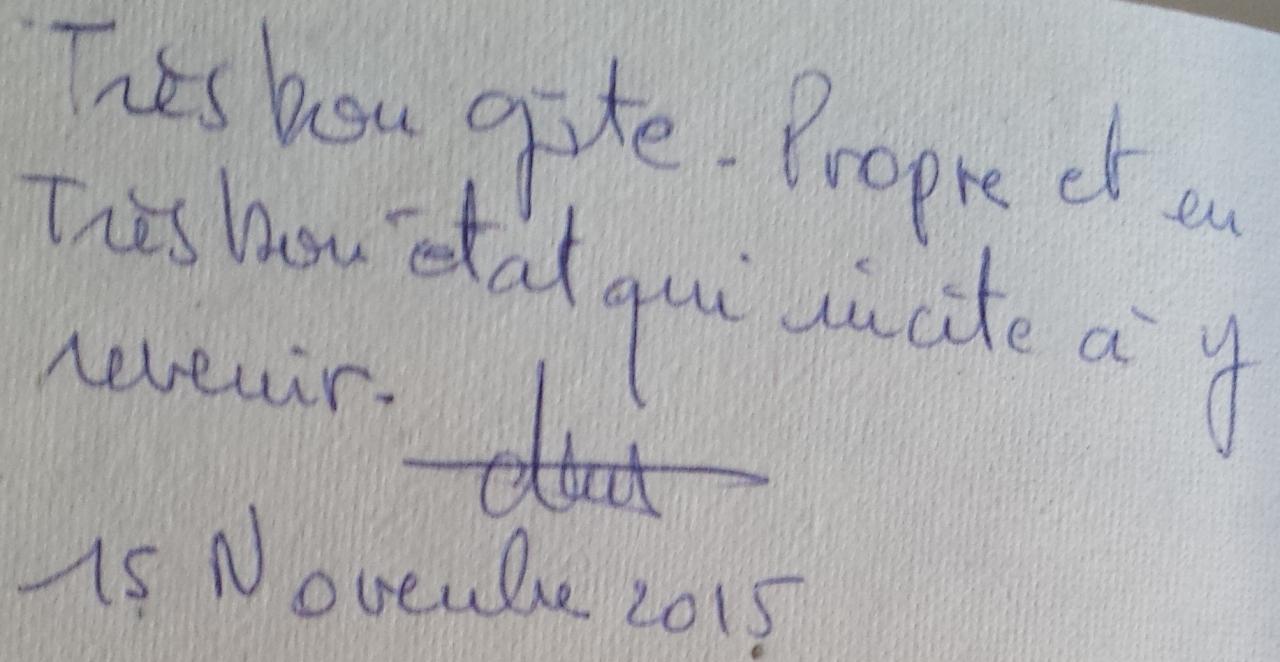 Très bon gîte. Propre et en
Très bon état qui incite à y
revenir.
15 Novembre 2015